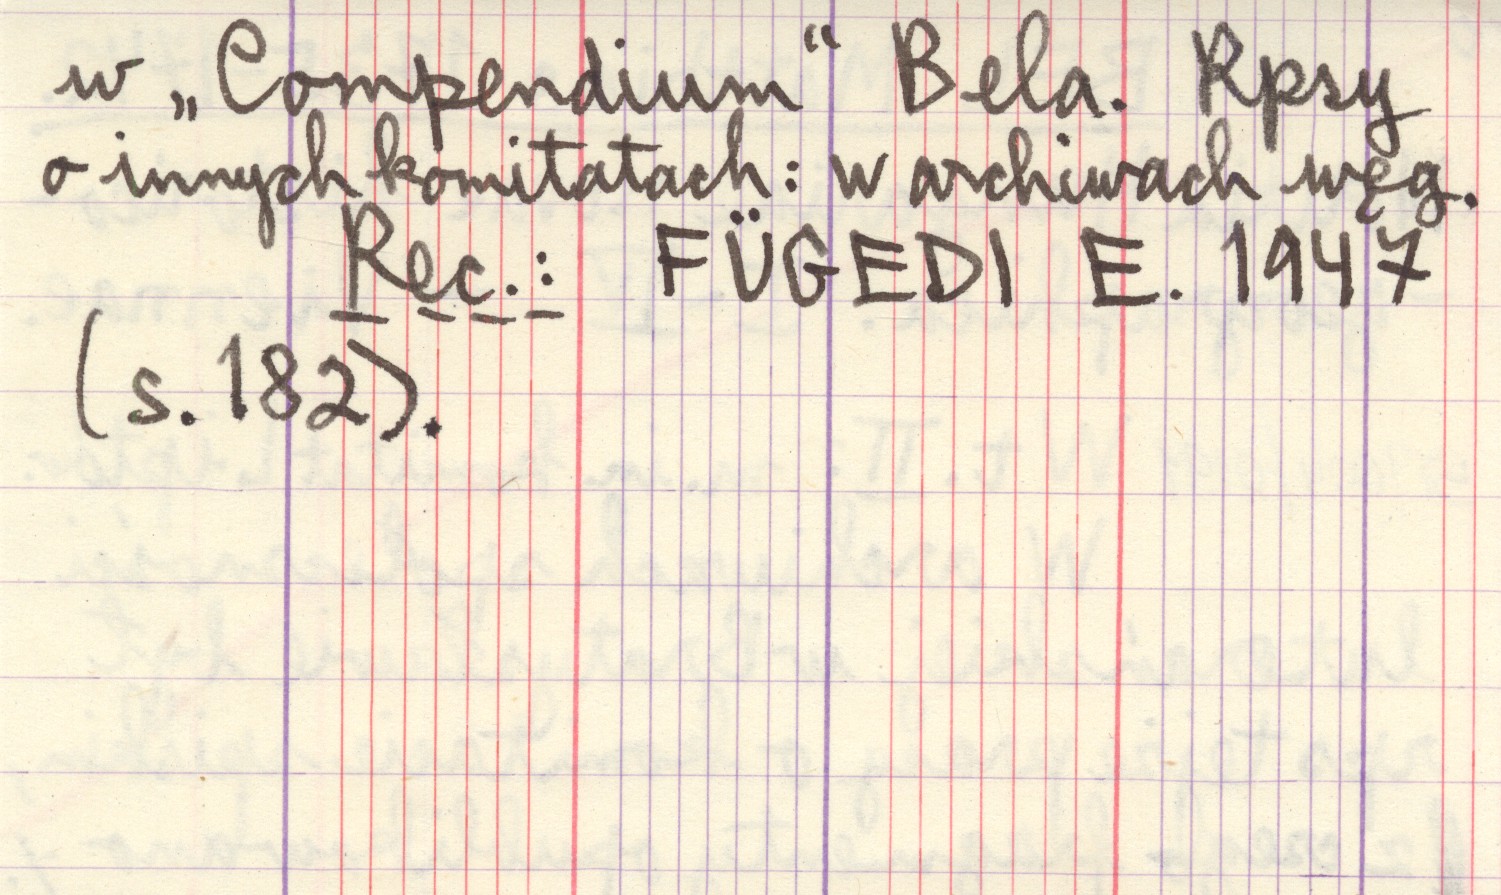 w „Compendium“ Bela. Rpsy
o innych komitatach: w archiwach węg.
Rec.: FÜGEDI E. 1947
(s. 182).